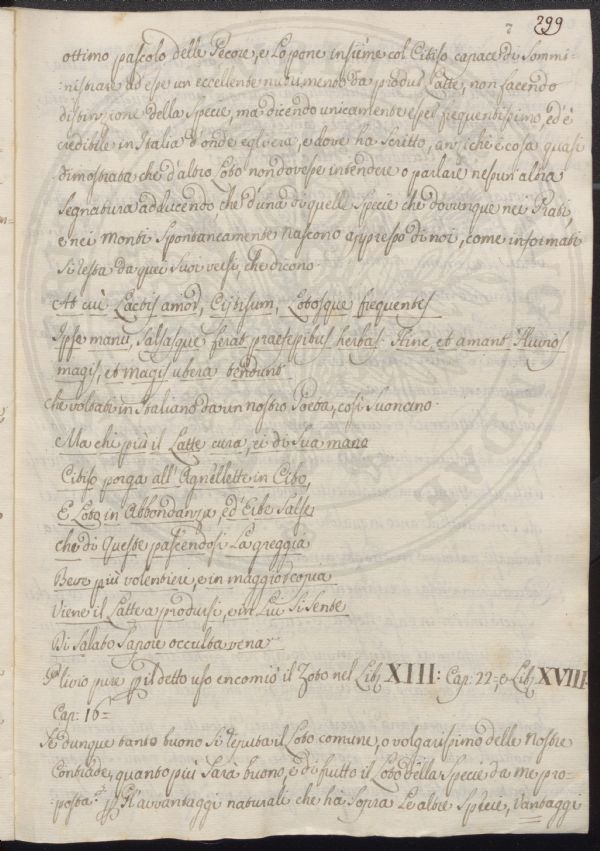 7 299
ottimo pascolo delle Pecore, e Lo pone insieme col Citiso capace di Sommi-
nistrare ad esse un eccellente nutrimento da produr Latte, non facendo
distinzione della Specie, ma dicendo unicamente esser frequentissimo, ed è
credibile in Italia d'onde egli era, e dove ha scritto, anziche è cosa quasi
dimostrata che d'altro Loto non dovesse intendere o parlare nesun altra
Segnatura adducendo che d'una di quelle Specie che dovunque nei Prati,
e nei Monti Spontaneamente nascono appresso di noi, come informati
Si resta da quei Suoi versi, che dicono.
At cui Lactis amor, Cijtisum, Lotosque frequentes
Ipse manu, Salsasque ferat praesepibus herbas. Hinc, et amant Fluvios
magis, et magis ubera tendunt
che voltati in Italiano da un nostro Poeta, così Suonano.
Ma chi più il Latte cura, ei di Sua mano
Citiso porga all' Agnellette in Cibo,
E Loto in Abbondanza, ed' Erbe Salse
che di Queste pascendosi La greggia
Beve più volentieri, e in maggior copia
Viene il Latte a prodursi, e in Lui Si Sente
Di Salato Sapore occulta vena
Plinio pure p il detto uso encomiò il Loto nel Lib XIII: Cap: 22=, e Lib XVIII
Cap: 16=
Se dunque tanto buono Si reputa il Loto comune, o volgarissimo delle Nostre
Contrade, quanto più Sarà buono, e di frutto il Loto della Specie da me pro=
posta p gl' avvantaggi naturali che hà Sopra Le altre Specie, Vantaggi